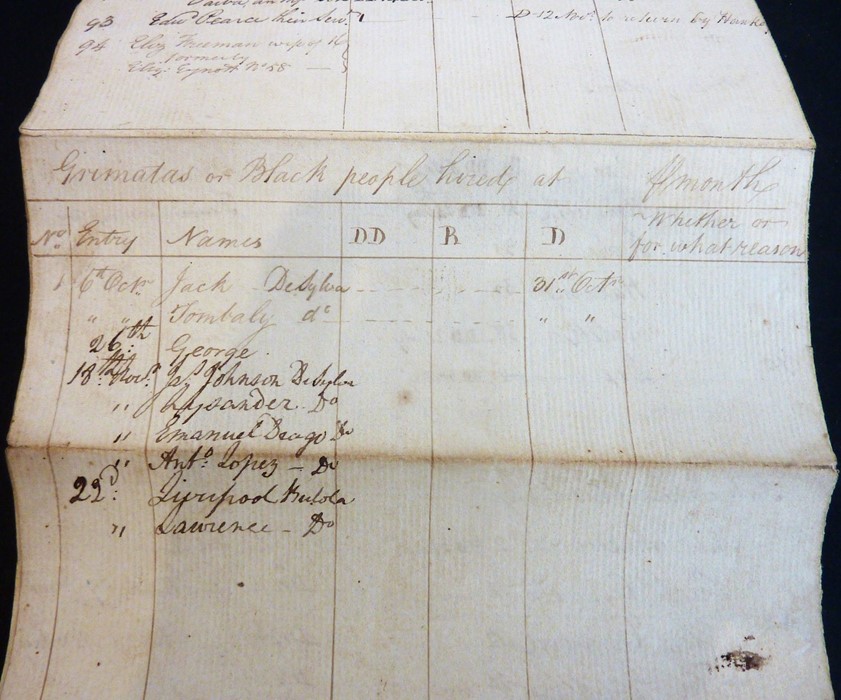 93 Edwd Pearce his Servt D 12 Novr to return by Hanke
94 Eliz Freeman wife of
formerly
Eliz: No 58
Grimatas or Black people hired at ⅌ month
No Entry Names DD R D Whether or
for what reason
1 6th Octr Jack DeSylva 31st Octr
" " Tombaly do " "
26th: George
18th Novr: Jas Johnson DeSylva
" Lysander Do
" Emanuel Deago Do
" Anto: Lopez Do
22d: Liverpool
" Lawrence Do